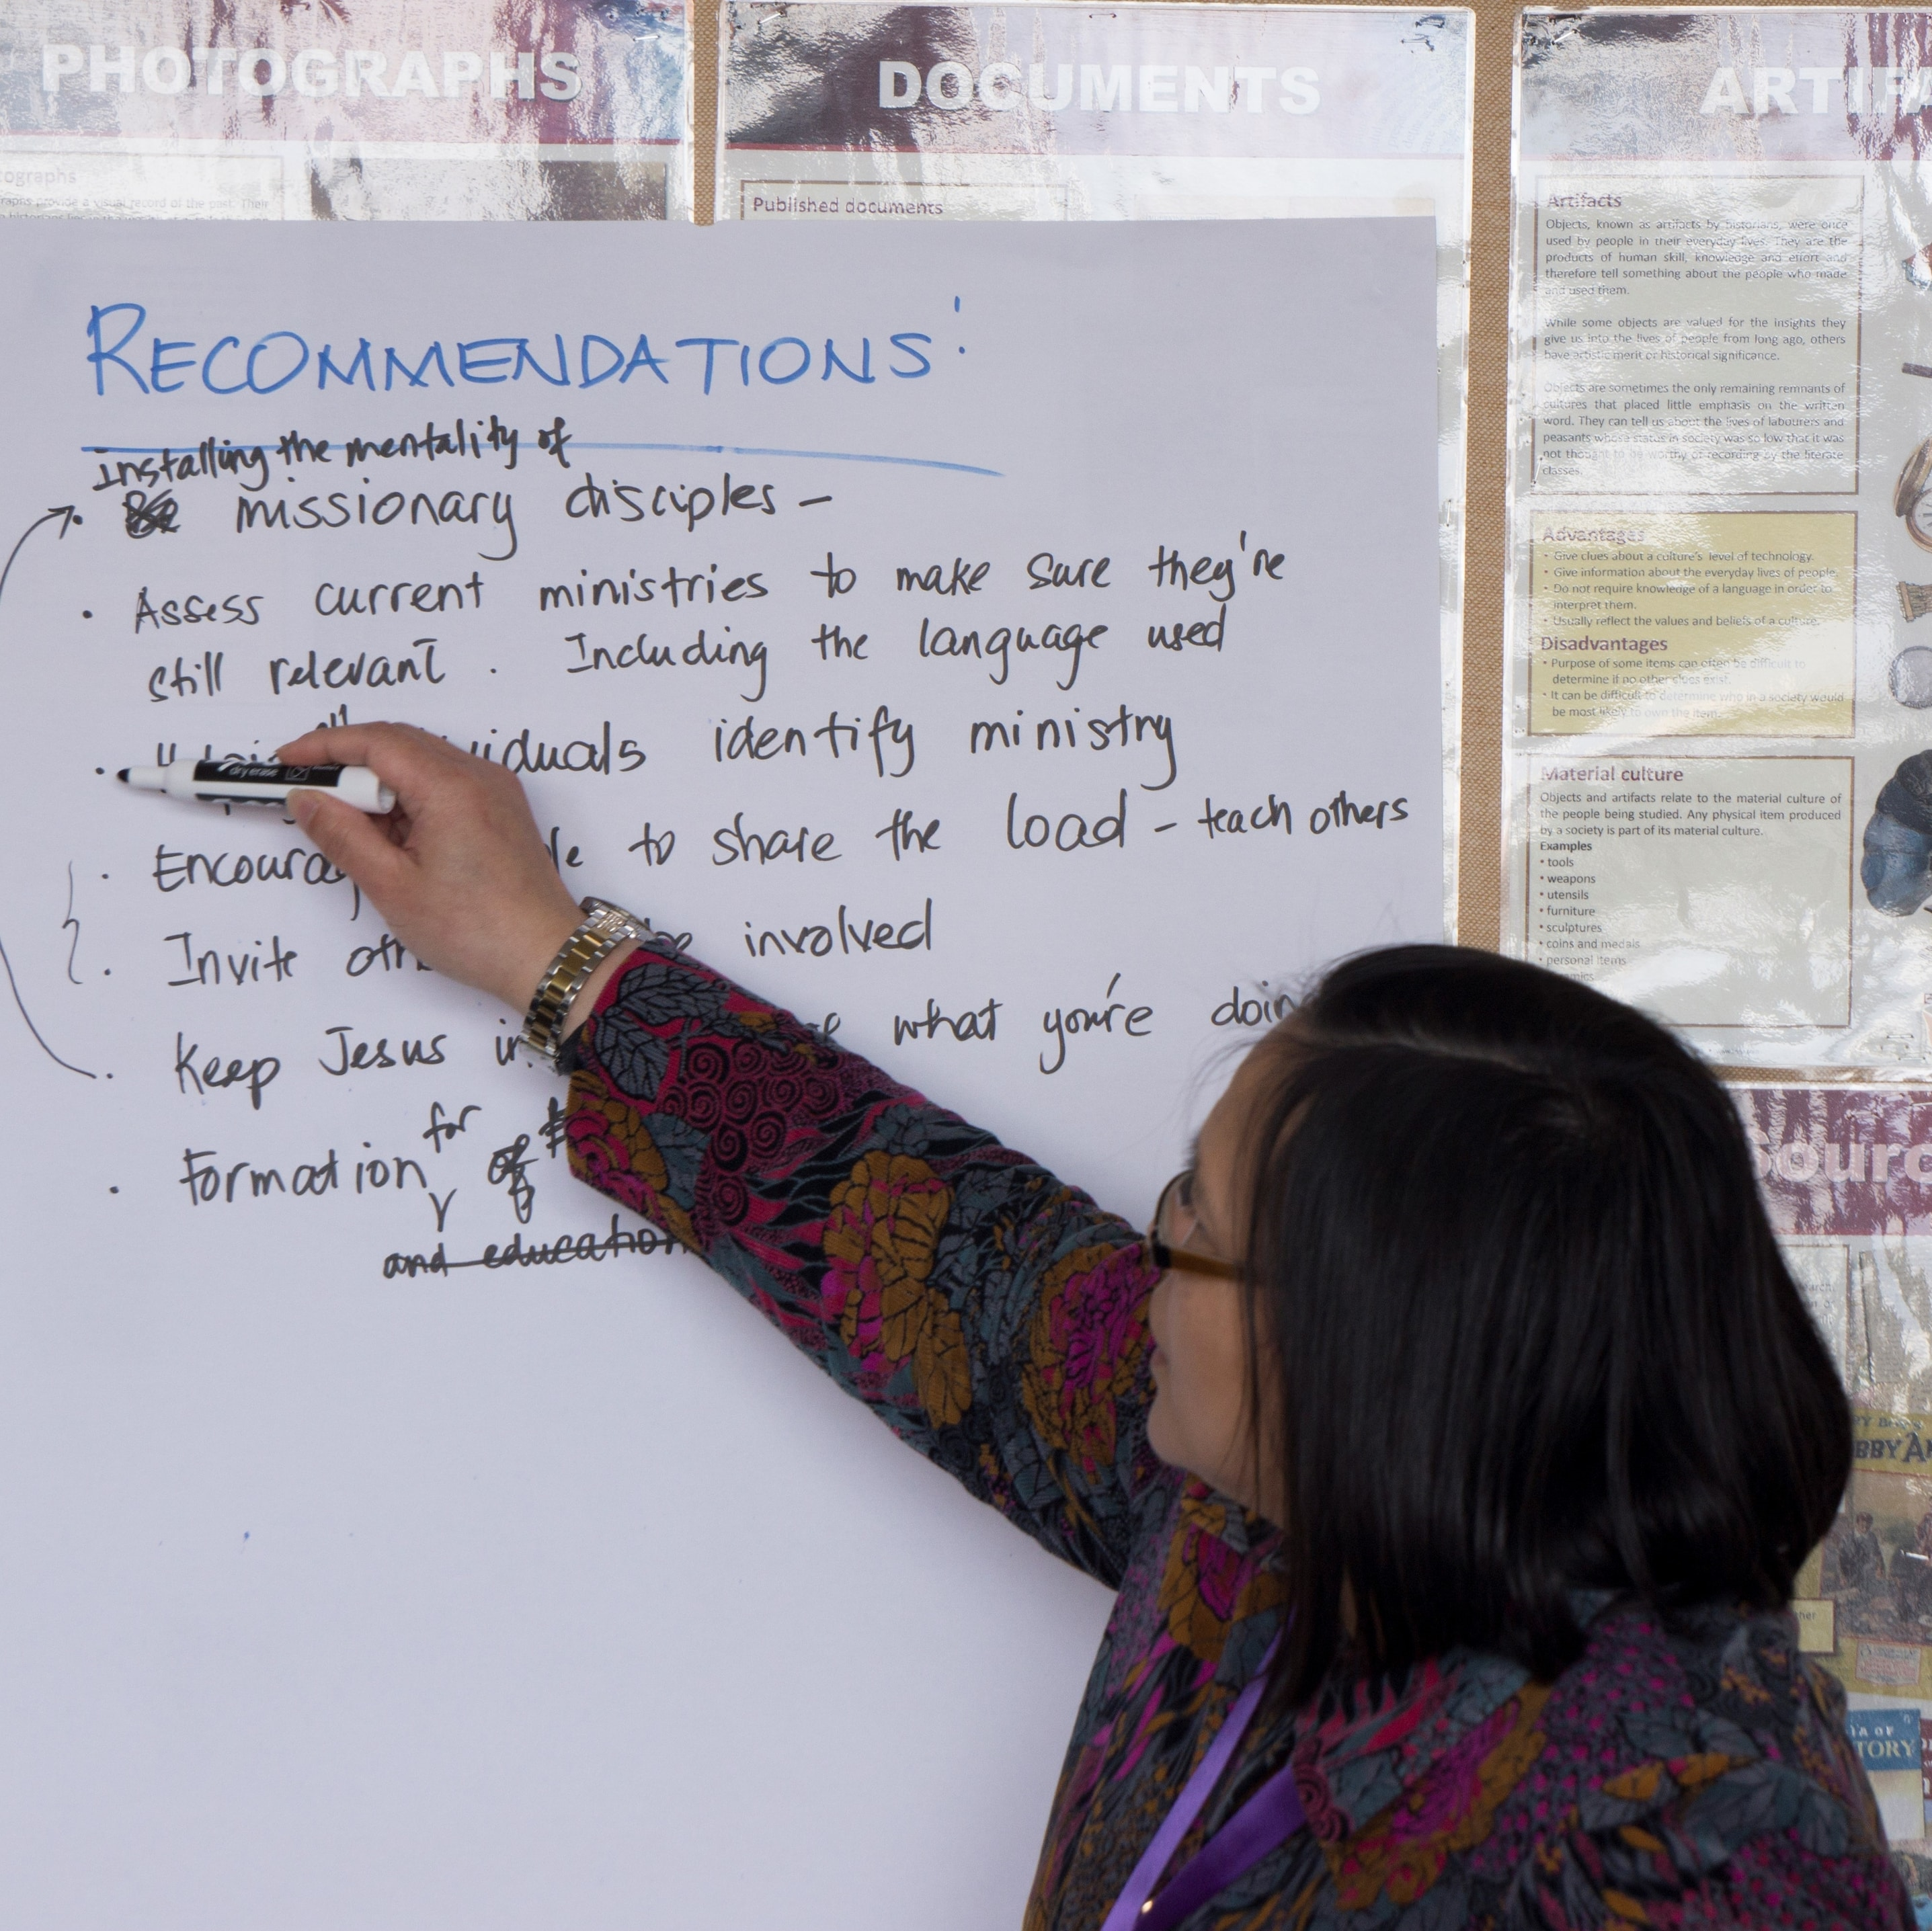 PHOTOGRAPHS
DOCUMENTS
Published documents
RECOMMENDATIONS:
Installing the mentality of
missionary disciples -
• Assess current ministries to make sure they're
still relevant. Including the language used
identify ministry
• to share the load - teach others
• Invite involved
• Keep Jesus what you're
• Formation for
and education
dry erase
Artifacts
Objects, known as artifacts by historians, were once
used by people in their everyday lives. They are the
products of human skill, knowledge and effort and
therefore tell something about the people who made
and used them.
While some objects are valued for the insights they
give us into the lives of people from long ago, others
have artistic merit or historical significance.
Objects are sometimes the only remaining remnants of
cultures that placed little emphasis on the written
word. They can tell us about the lives of labourers and
peasants whose status in society was so low that it was
not thought to be worthy of recording by the literate
classes.
Advantages
• Give clues about a culture's level of technology.
• Give information about the everyday lives of people.
• Do not require knowledge of a language in order to
interpret them.
• Usually reflect the values and beliefs of a culture.
Disadvantages
• Purpose of some items can often be difficult to
determine if no other clues exist.
• It can be difficult to determine who in a society would
be most likely to own the item.
Material culture
Objects and artifacts relate to the material culture of
the people being studied. Any physical item produced
by a society is part of its material culture.
Examples
• tools
• weapons
• utensils
• furniture
• sculptures
• coins and medals
• personal items